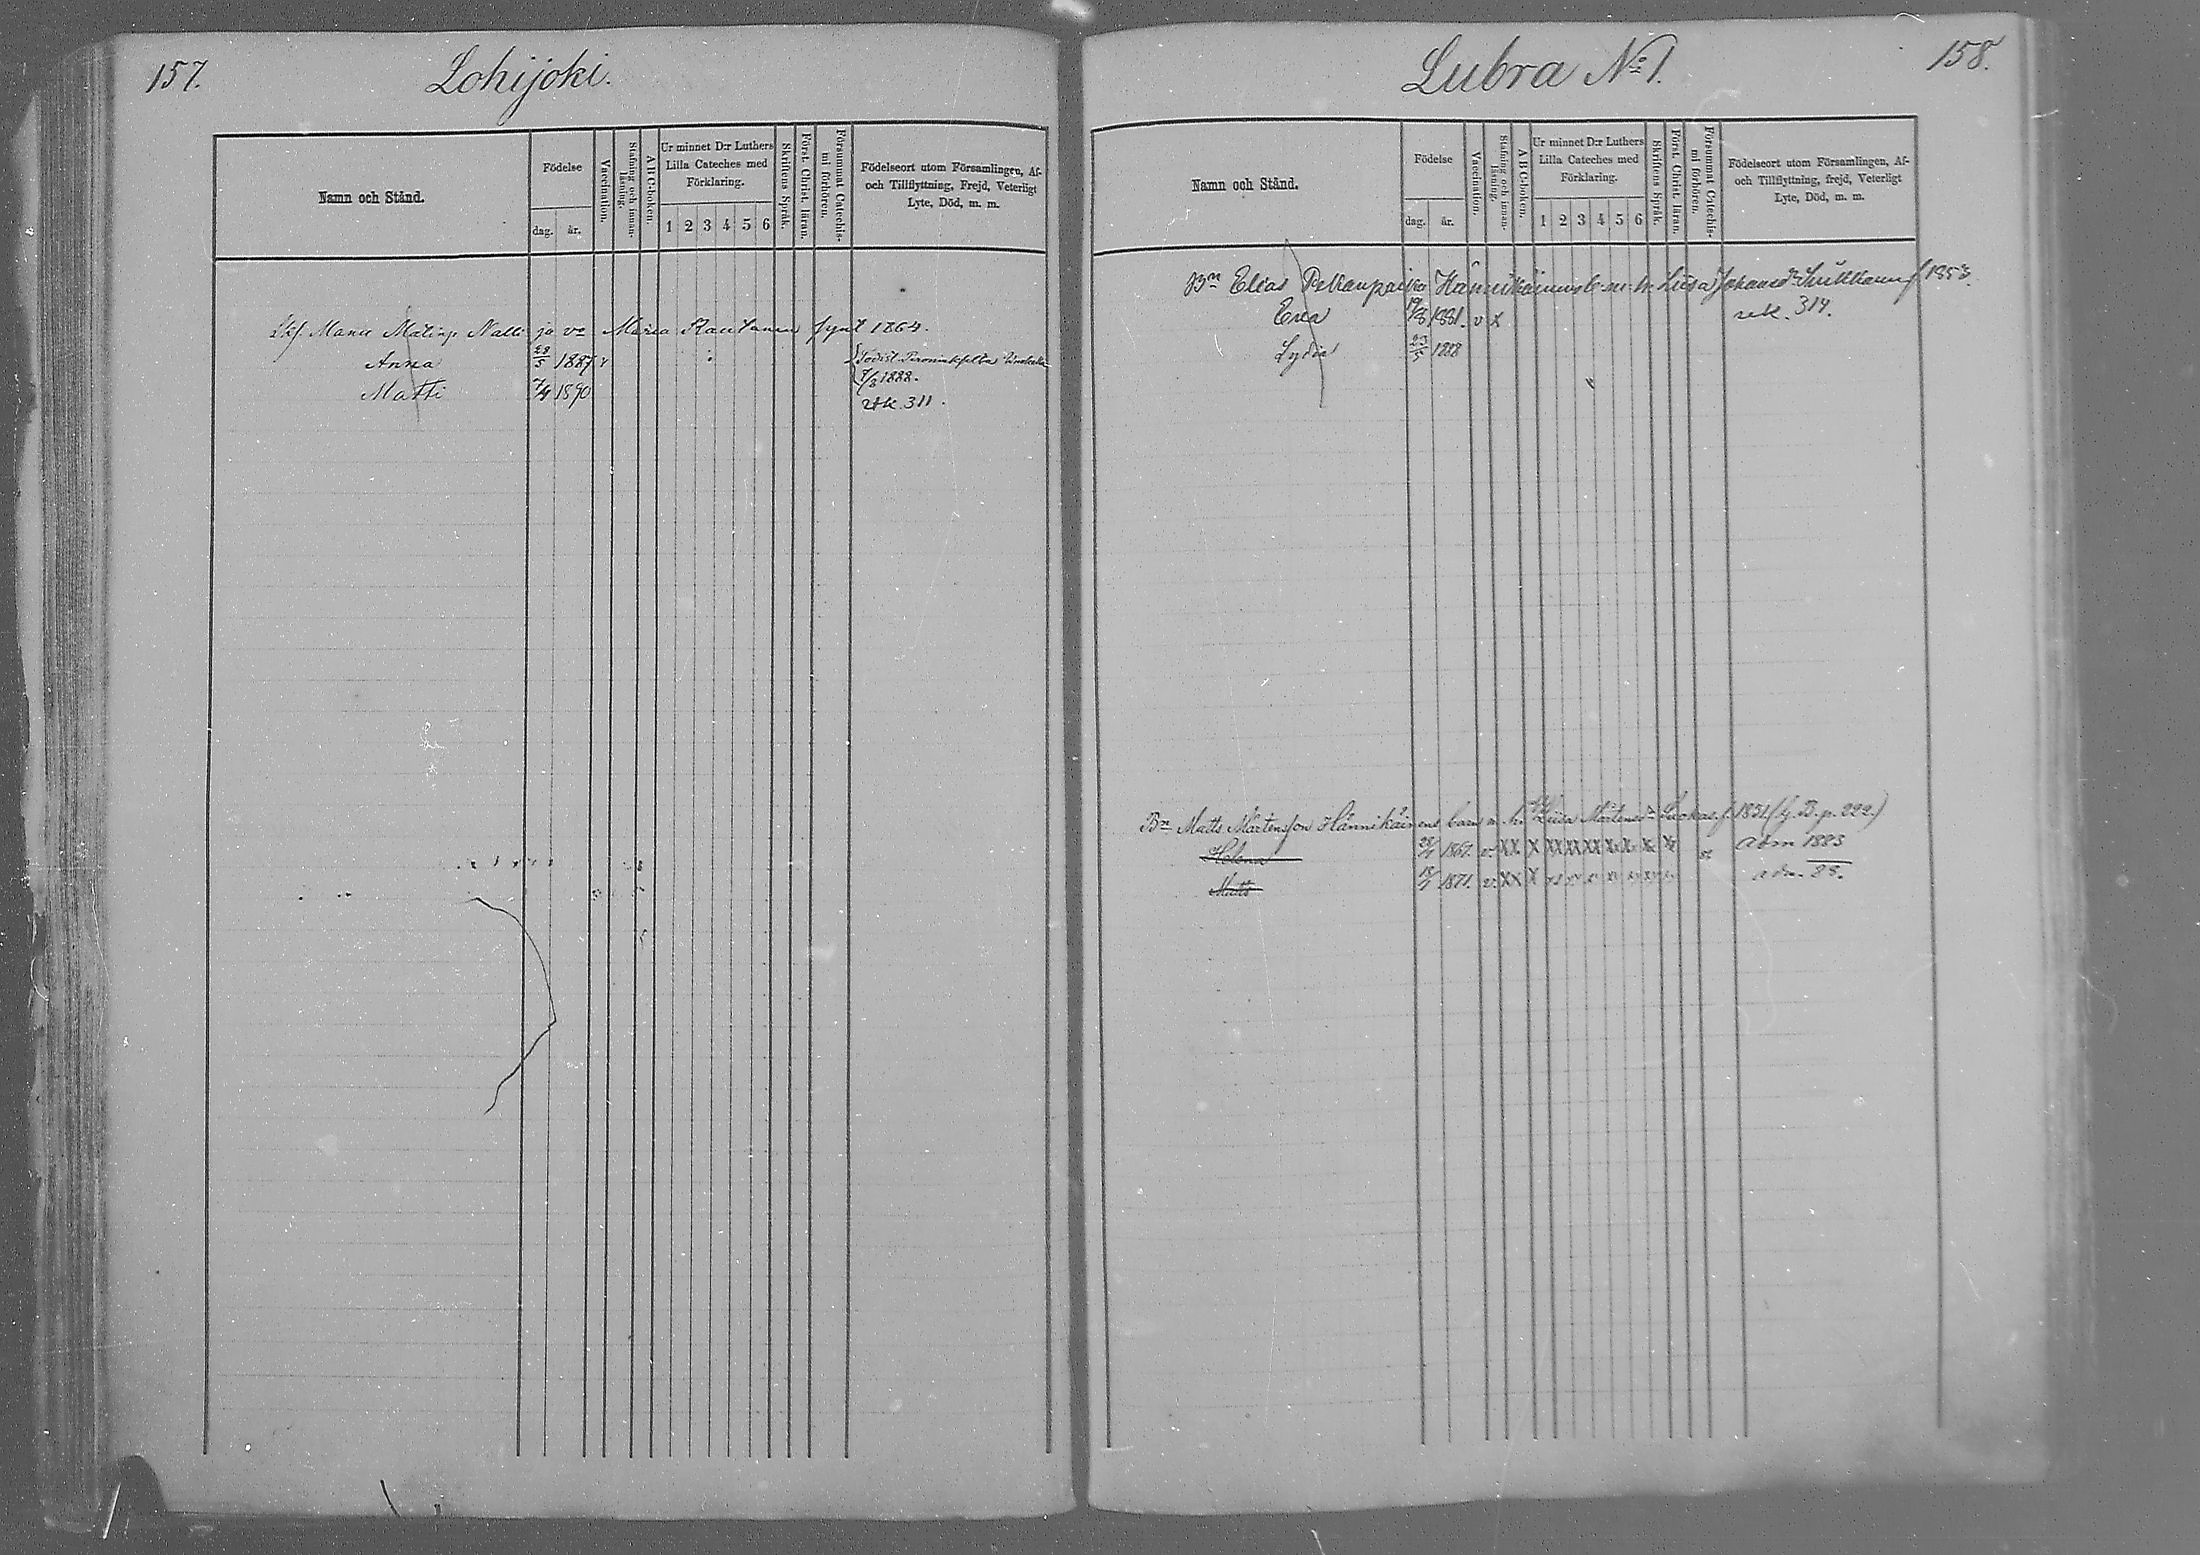 157.
Lohijoki.
Namn och Stånd.
Födelse
dag.
år.
Vaccination.
Stafning och innan-
läsning.
A B C-boken.
Ur minnet D:r Luthers
Lilla Cateches med
Förklaring.
1 2 3 4 5 6
Skriftens Språk.
Först. Christ. läran.
Försummat Catechis-
mi förhören.
Födelseort utom Församlingen, Af-
och Tillflyttning, Frejd, Veterligt
Lyte, Död, m. m.
Manu Matinp. Nalli ja vo Maria Rautanen synt 1864.
Anna 28/5 1887 v
7/3 1888.
Matti 7/4 1890
rtk. 311.
Lubra No 1.
158.
Namn och Stånd.
Födelse
dag.
år.
Vaccination.
Stafning och innan-
läsning.
A B C-boken.
Ur minnet D:r Luthers
Lilla Cateches med
Förklaring.
1 2 3 4 5 6
Skriftens Språk.
Först. Christ. läran.
Försummat Catechis-
mi förhören.
Födelseort utom Församlingen, Af-
och Tillflyttning, frejd, Veterligt
Lyte, Död, m. m.
Bn Elias Pekanpoika Hännikäinens b. m. h. Liisa Johansdr f 1853.
Eva 19/8 1881. v x
rtk. 314.
Lydia 23/5 1888
Bn Matts Mårtensson Hännikäinens barn m. h. Liisa Mårtensdr f. 1831 (Lj. B. p. 222.)
Helena 1867. v. XX X XX XX XX adm 1883
Matts 1871. v. XX X adm. 88.